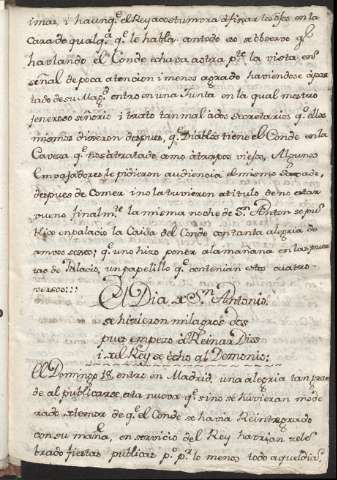 imar, i haunq.e el Rey acostumbra a fijar los ojos en la
Cara de qualq.a q.e le habla con todo eso se observo q.e
hablando el Conde echava astra p.te la vista en
señal de poca atencion i menos agrado haviendose apar
tado de su Mag.d entro en una Junta en la qual mostro
jeneroso señorio i trato tan mal a dos secretarios q.e ellos
mismos dixeron despues, q.e Diablos tiene el Conde en la
Caveza q.e nos a tratado como a trapos viejos, Algunos
Embajadores le pidieron audiencia el mismo sabado,
despues de Comer i no la tuvieron a titulo de no estar
bueno finalm.te la misma noche de S.n Anton se pu
blico en palacio la Caida del Conde con tanta alegria de
ambos sexos; q.e uno hizo poner a la mañana en las puer
tas de Palacio, un papelillo q.e contenian estos cuatro
versos:::
El Dia de S.n Antonio
se hicieron milagros dos
pues empezó á Reinar Dios
i del Rey se echo al Demonio:
El Domingo 18 entro en Madrid, una alegria tan gran
de al publicarse esta nueva q.e si no se huvieran mode
rado por temor de q.e el Conde se havia Reintegrado
con su maña, en servicio del Rey havrian cele
brado fiestas publicas p.r p.r lo menos todo aquel dia